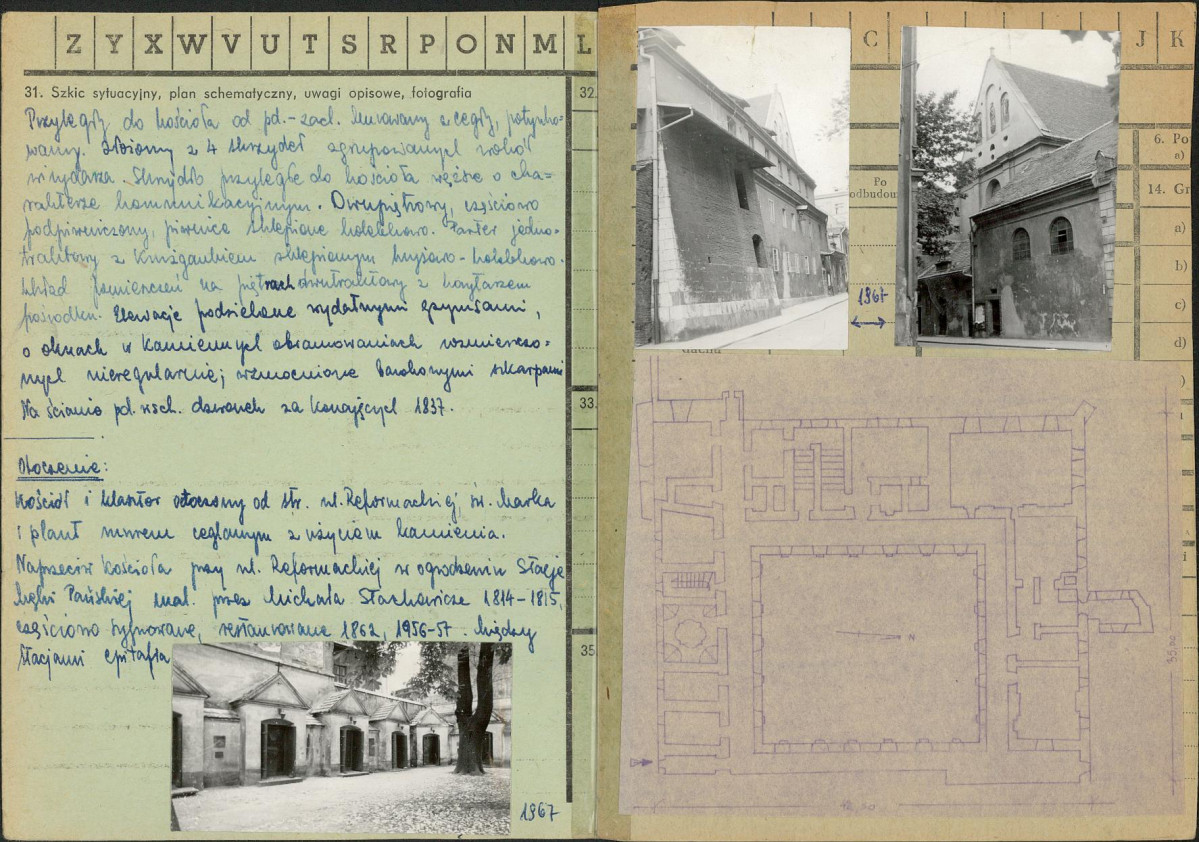 Z Y X W V U T S R P O N M L
31. Szkic sytuacyjny, plan schematyczny, uwagi opisowe, fotografia
32.
Przyległy do kościoła od pd.-zach. Murowany z cegły, potynko-
wany. Złożony z 4 skrzydeł zgrupowanych wokół
wirydarza. Skrzydło przyległe do kościoła węższe o cha=
rakterze kommunikacyjnym. Dwupiętrowy, częściowo
podpiwniczony, piwnice sklepione kolebkowo. Parter jedno-
traktowy z krużgankiem sklepionym krzyżowo-kolebkowo.
Układ pomieszczeń na piętrach dwutraktowy z korytarzem
pośrodku. Elewacje podzielone wydatnymi gzymsami,
o oknach w kamiennych obramowaniach rozmieszczo=
nych nieregularnie; wzmocnione barokowymi skarpami
Na ścianie pd. wsch. dzwonek za konających 1837.
33.
Otoczenie:
Kościół i klasztor otoczony od str. ul. Reformackiej, św. Marka
i plant murem ceglanym z użyciem kamienia.
Naprzeciw kościoła przy ul. Reformackiej w ogrodzeniu Stacje
Męki Pańskiej mal. przez Michała Stachowicza 1814-1815,
częściowo sygnowane, restaurowane 1862, 1956-57. Między
stacjami epitafia
35.
1967
C
J K
6. Po
a)
Po
odbudow
14. Gr
a)
b)
c)
d)
1967
dachu
N
35,20